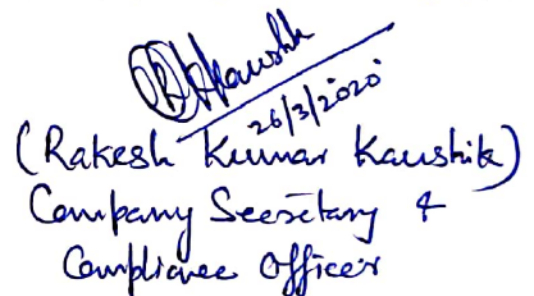 RKaushik
26/3/2020
(Rakesh Kumar Kaushik)
Company Secretary &
Compliance Officer